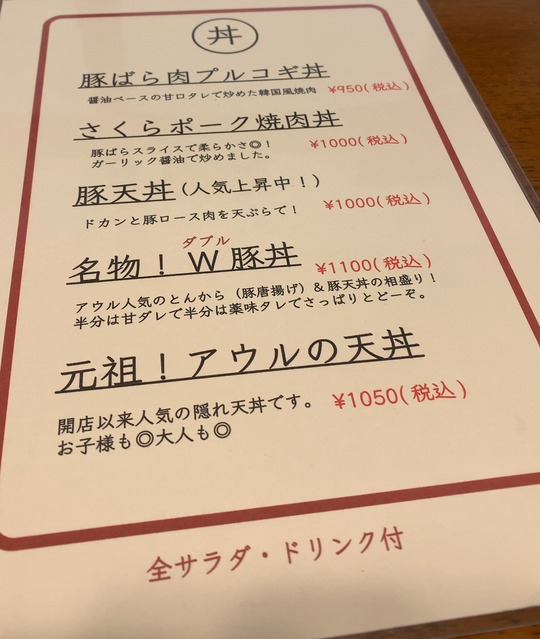 丼
豚ばら肉プルコギ丼
醤油ベースの甘口タレで炒めた韓国風焼肉 ¥950(税込)
さくらポーク焼肉丼
豚ばらスライスで柔らかさ◎! ¥1000(税込)
ガーリック醤油で炒めました。
豚天丼(人気上昇中!)
ドカンと豚ロース肉を天ぷらで! ¥1000(税込)
ダブル
名物!W豚丼 ¥1100(税込)
アウル人気のとんから(豚唐揚げ)&豚天丼の相盛り!
半分は甘ダレで半分は薬味タレでさっぱりとどーぞ。
元祖!アウルの天丼
開店以来人気の隠れ天丼です。 ¥1050(税込)
お子様も◎大人も◎
全サラダ・ドリンク付